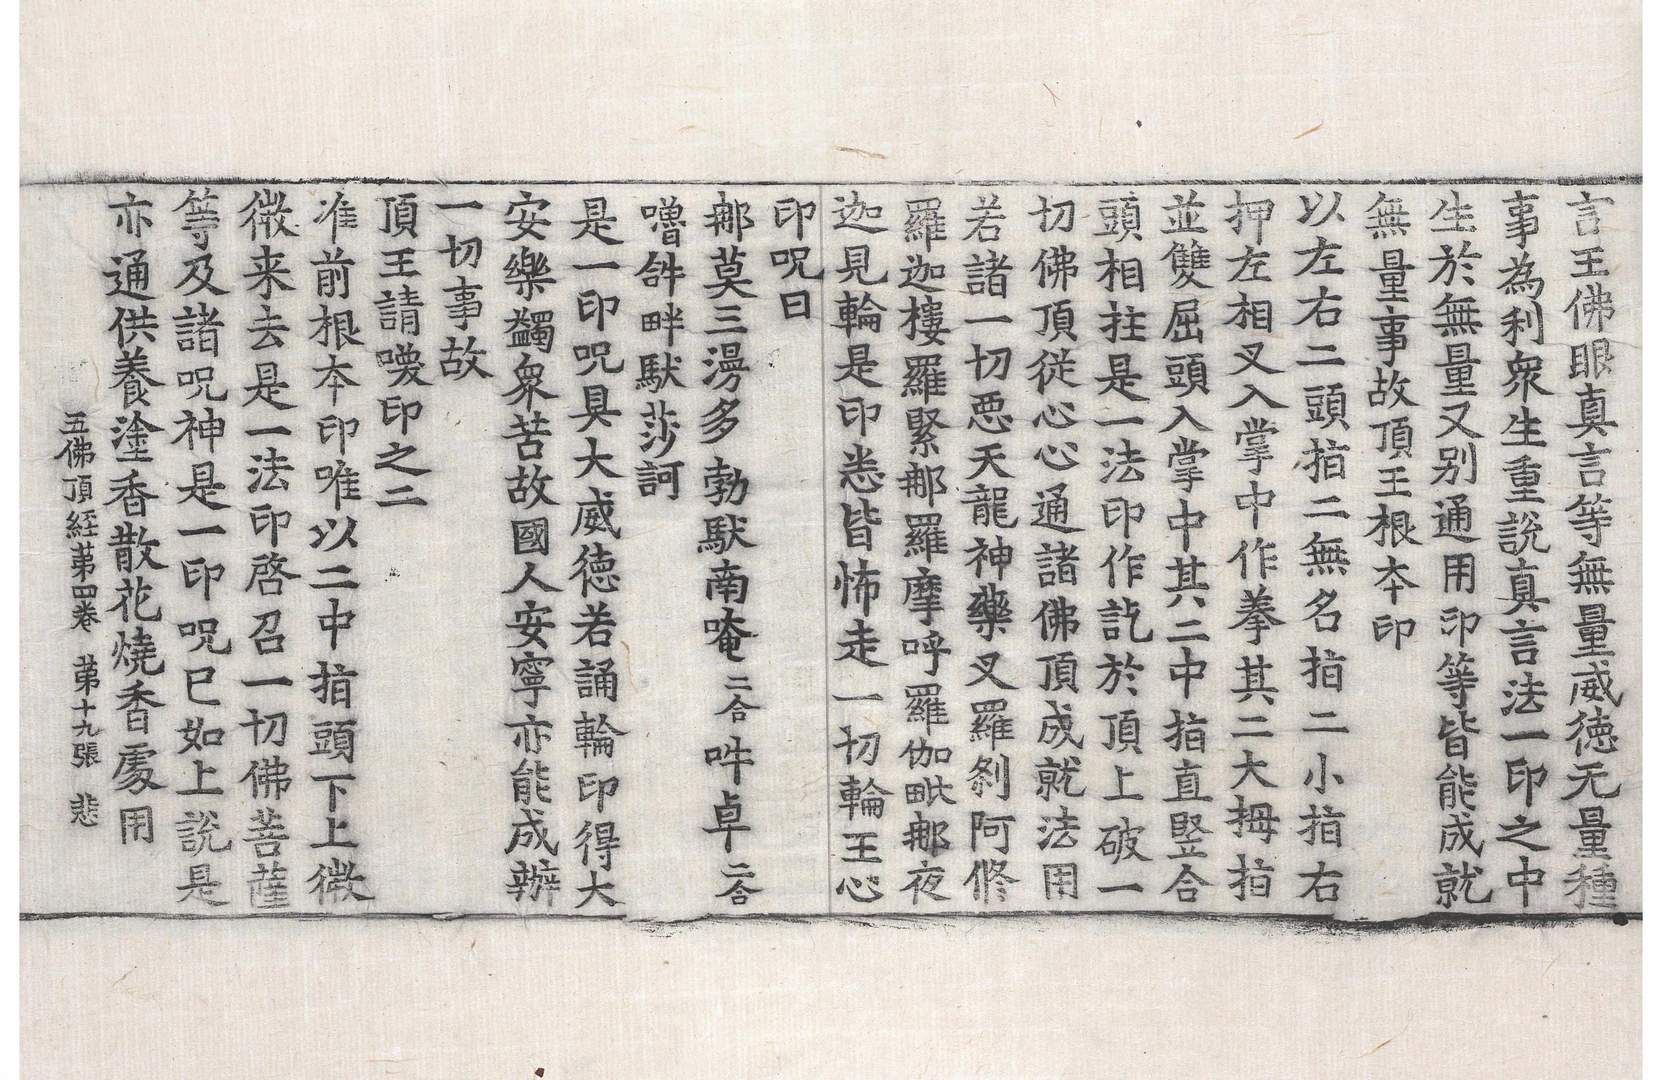 言王佛眼真言等無量威德无量種
事為利衆生重說真言法一印之中
生於無量又别通用印等皆能成就
無量事故頂王根本印
以左右二頭指二無名指二小指右
押左相叉入掌中作拳其二大拇指
並雙屈頭入掌中其二中指直竪合
頭相拄是一法印作訖於頂上破一
切佛頂従心心通諸佛頂成就法用
若諸一切惡天龍神藥叉羅刹阿修
羅迦樓羅緊那羅摩呼羅伽毗那夜
迦見輪是印悉皆怖走一切輪王心
印呪曰
那莫三漫多勃馱南唵二合吽卓二合
嚕𤙖畔馱莎訶
是一印呪具大威德若誦輪印得大
安樂蠲衆苦故國人安寧亦能成辦
一切事故
頂王請喚印之二
准前根本印唯以二中指頭下上微
微来去是一法印啓召一切佛菩薩
等及諸呪神是一印呪已如上說是
亦通供養塗香散花燒香處用
五佛頂經苐四卷 苐十九張 悲